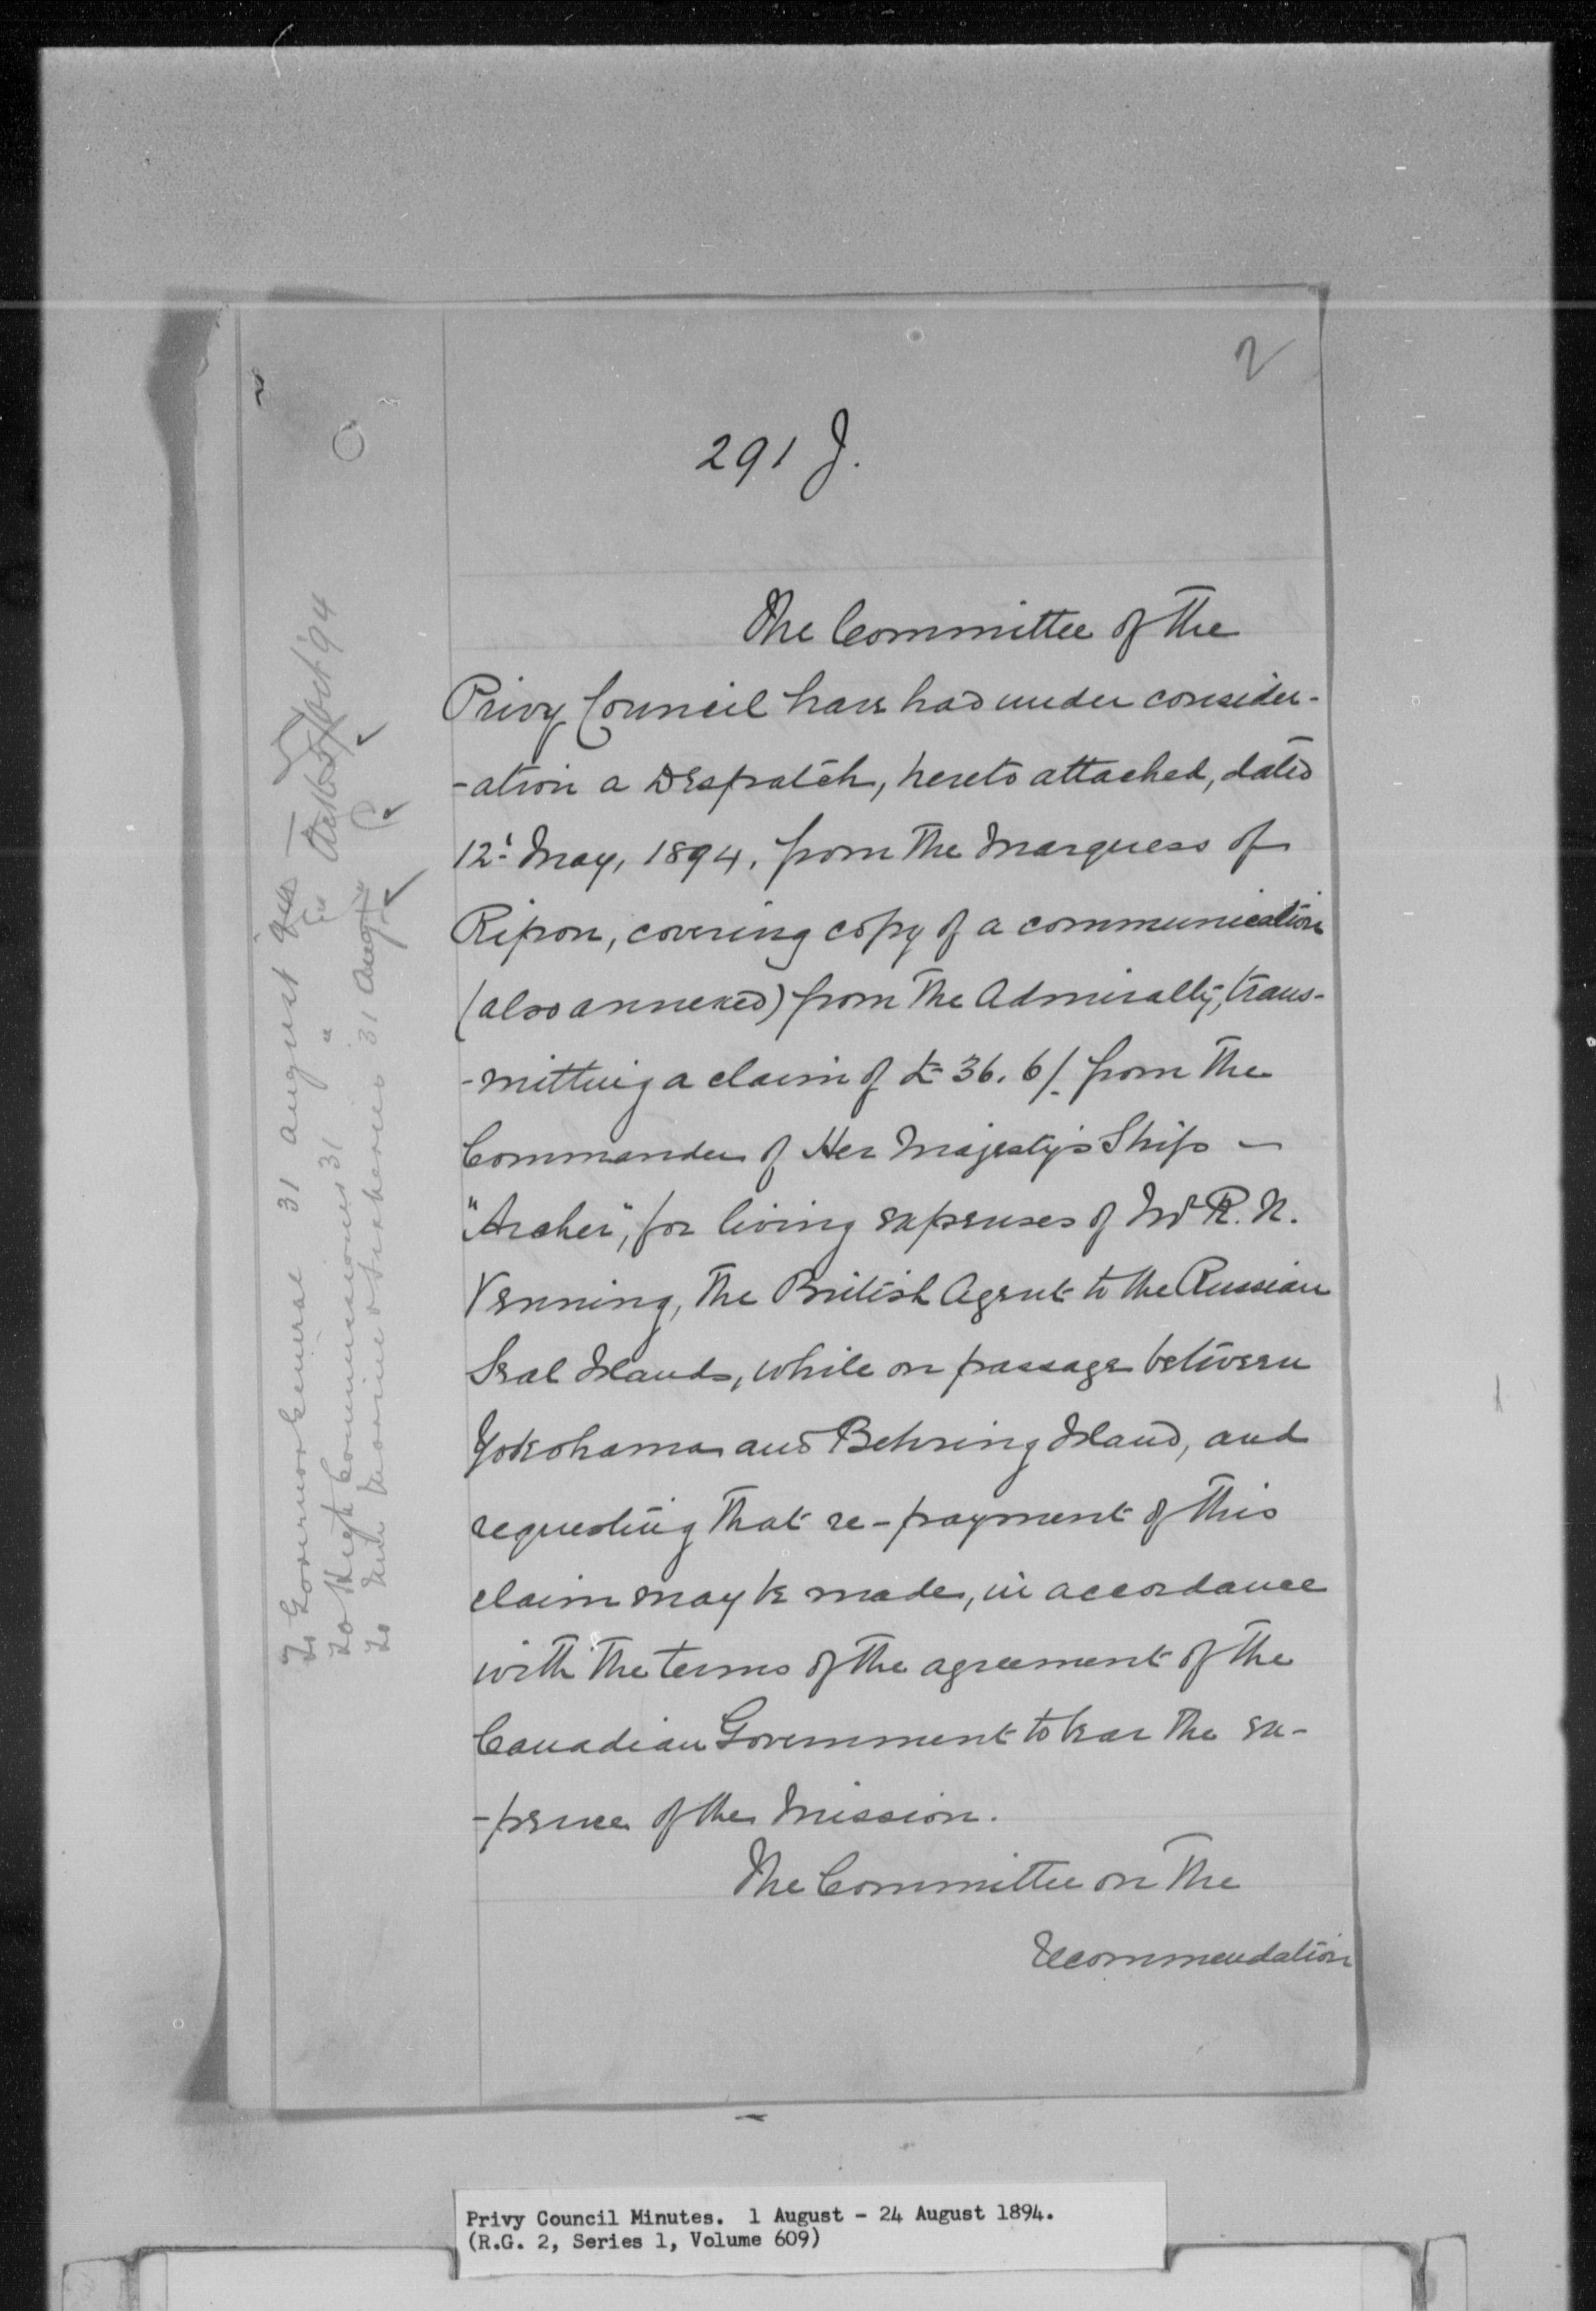 2
291 J.
The Committee of the
Privy Council have had under consider-
-ation a Despatch, hereto attached, dated
12th May, 1894, from the Marquess of
Ripon, covering copy of a communication
(also annexed) from the Admiralty, trans-
-mitting a claim of £36.6/- from the
Commander of Her Majesty's Ship -
"Archer", for living expenses of Mr R. N.
Venning, the British Agent to the Russian
Seal Islands, while on passage between
Yokohama and Behring Island, and
requesting that re-payment of this
claim may be made, in accordance
with the terms of the agreement of the
Canadian Government to bear the ex-
-pense of the Mission.
The Committee on the
recommendation
To Governor General 31 August
To High Commissioner 31 "
To Min Marine & Fisheries 31 Aug
Privy Council Minutes. 1 August - 24 August 1894.
(R.G. 2, Series 1, Volume 609)